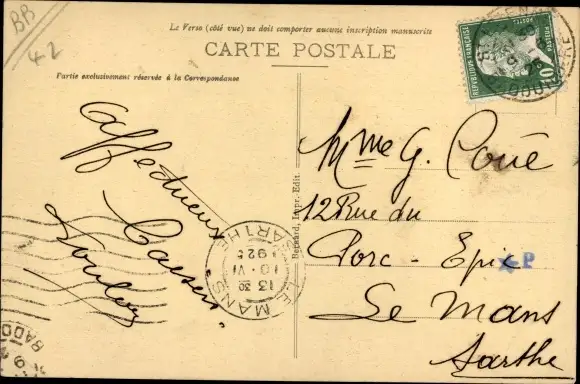 BB
42
Le Verso (côté vue) ne doit comporter aucune inscription manuscrite
CARTE POSTALE
Partie exclusivement réservée à la Correspondance
REPUBLIQUE FRANÇAISE
POSTES
PASTEUR
10c
Affectueux
Baisers
Loulou
Mme G. Coué
12 Rue du
Porc-Epic
P
Le Mans
Sarthe
Bernard, Impr.-Edit.
LE MANS
SARTHE
13 30
10 · VI
1925
BADO